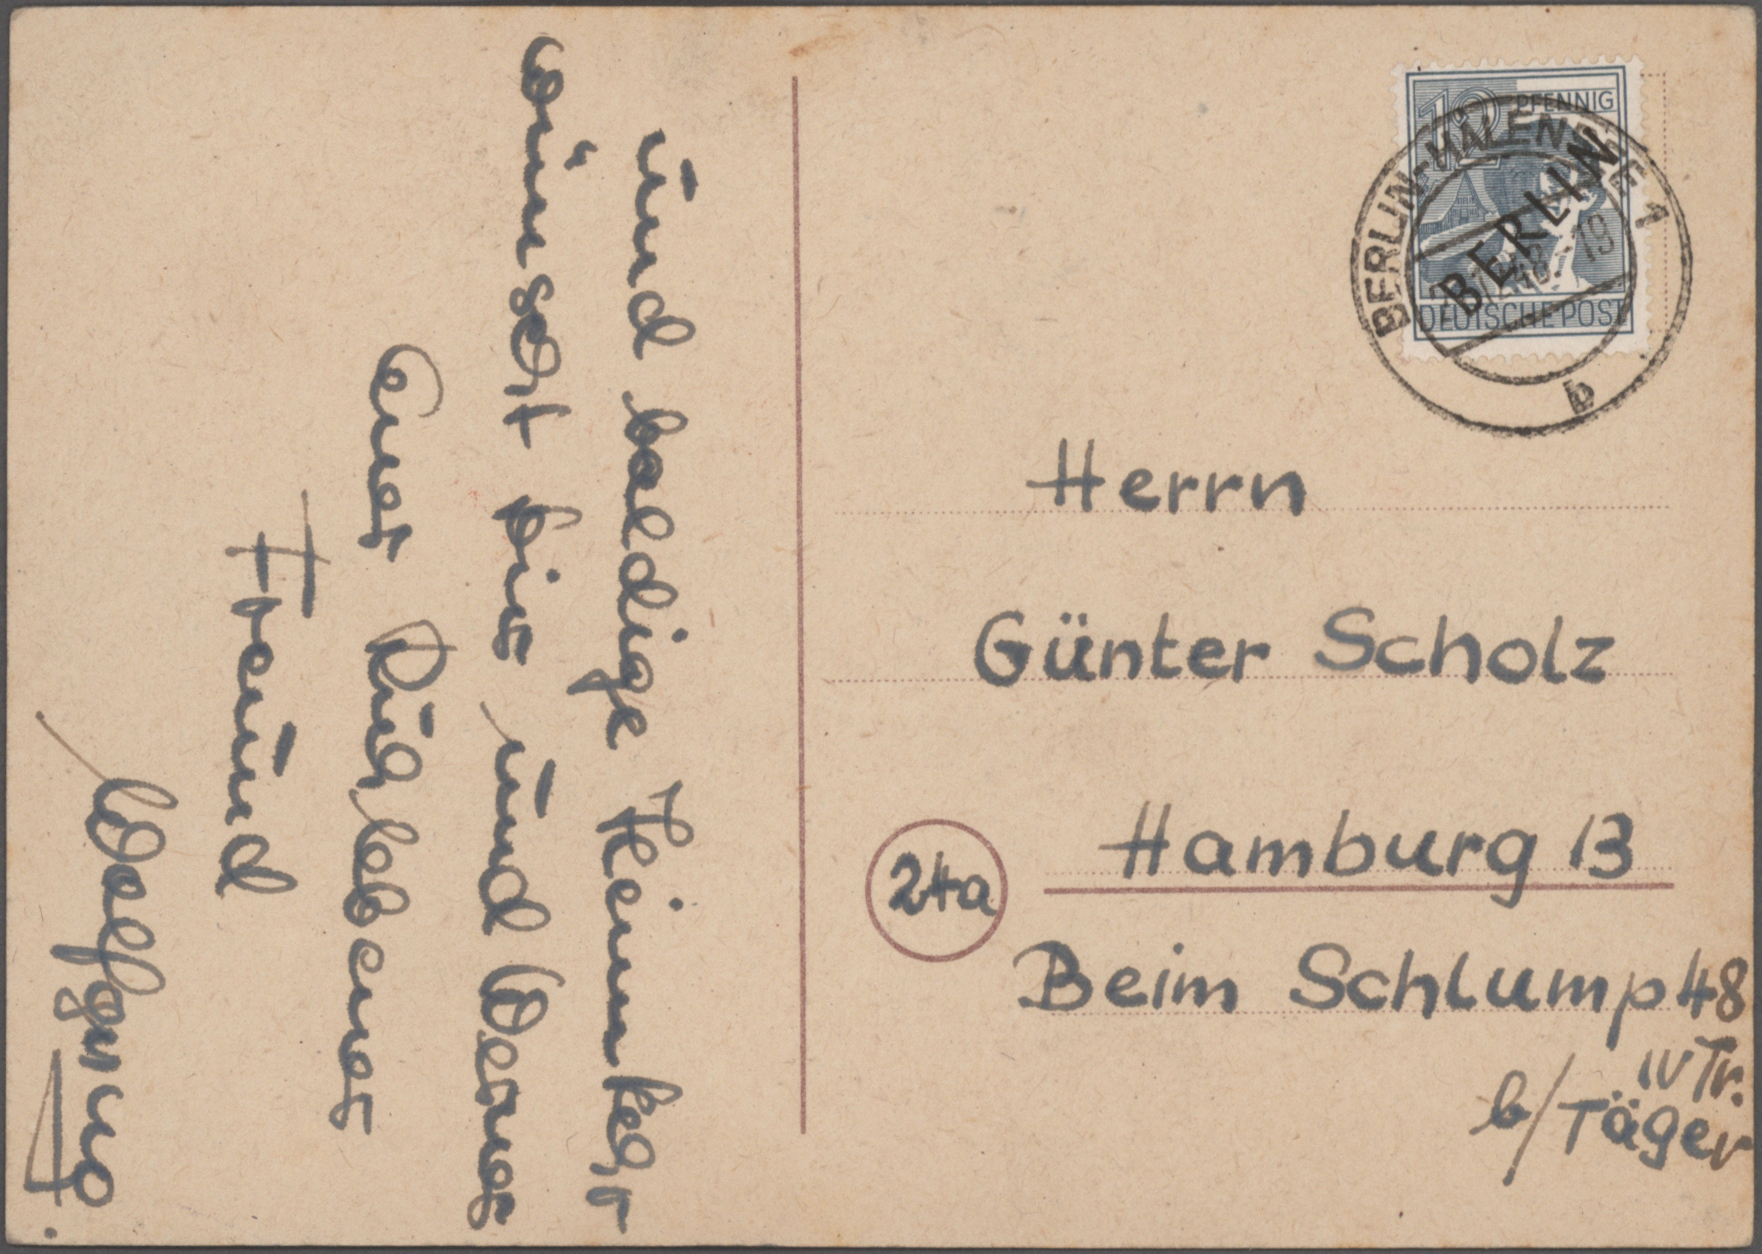 und baldige Heimkehr
wünscht Dir und Werner
Euer Ruhlebener
Freund
Wolfgang.
12 PFENNIG
BERLIN
DEUTSCHE POST
BERLIN-HALENSEE 1
b
Herrn
Günter Scholz
24a
Hamburg 13
Beim Schlump 48
IV Tr.
b/Täger